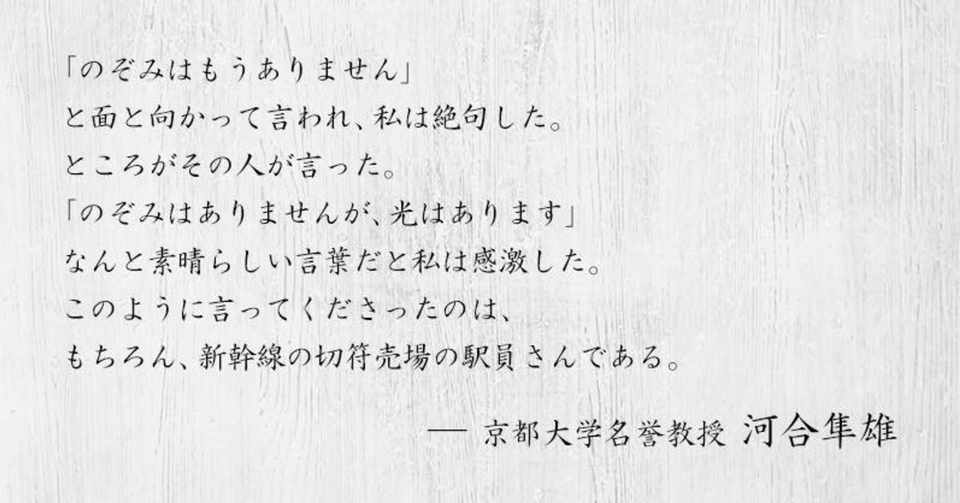 「のぞみはもうありません」
と面と向かって言われ、私は絶句した。
ところがその人が言った。
「のぞみはありませんが、光はあります」
なんと素晴らしい言葉だと私は感激した。
このように言ってくださったのは、
もちろん、新幹線の切符売場の駅員さんである。
― 京都大学名誉教授 河合隼雄